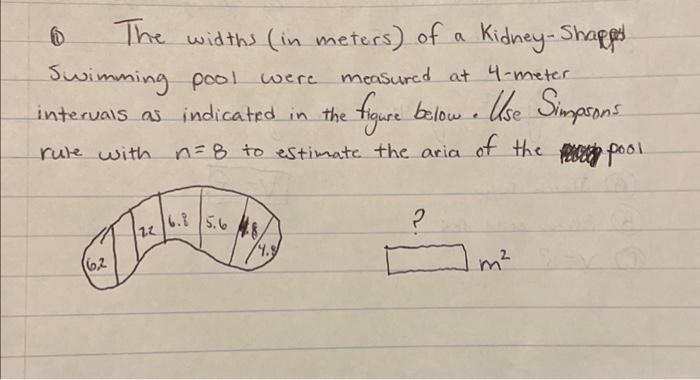 ① The widths (in meters) of a Kidney-Shapped
Swimming pool were measured at 4-meter
intervals as indicated in the figure below. Use Simpsons
rule with n=8 to estimate the aria of the pool
6.2 7.2 6.8 5.6 4.8 4.8
?
m²